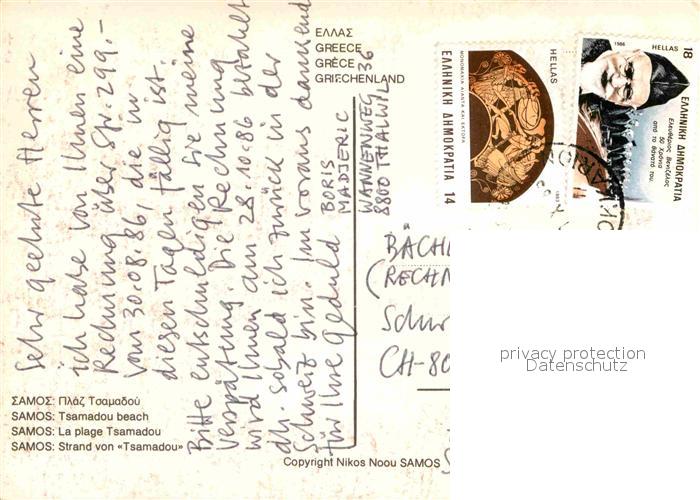 Sehr geehrte Herren
ich habe von Ihnen eine
Rechnung über SFr. 299.-
vom 30.08.86, die in
diesen Tagen fällig ist.
Bitte entschuldigen Sie meine
Verspätung. Die Rechnung
wird Ihnen am 28.10.86 bezahlt
dh. sobald ich zurück in der
Schweiz bin. Im voraus dankend
für Ihre Geduld
BORIS
MADJERIC
WANNENWEG 36
8800 THALWIL
ΕΛΛΑΣ
GREECE
GRÈCE
GRIECHENLAND
HELLAS
ΜΟΝΟΜΑΧΙΑ ΑΙΑΝΤΑ ΚΑΙ ΕΚΤΟΡΑ
ΕΛΛΗΝΙΚΗ ΔΗΜΟΚΡΑΤΙΑ 14
1986 HELLAS 18
ΕΛΛΗΝΙΚΗ ΔΗΜΟΚΡΑΤΙΑ
Ελευθέριος Βενιζέλος
50 Χρόνια
από το θάνατό του.
BÄCH
(RECHN
CH-80
privacy protection
Datenschutz
ΣΑΜΟΣ: Πλάζ Τσαμαδού
SAMOS: Tsamadou beach
SAMOS: La plage Tsamadou
SAMOS: Strand von «Tsamadou»
Copyright Nikos Noou SAMOS